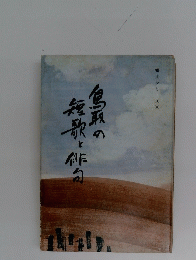 鳥取の
短歌と俳句